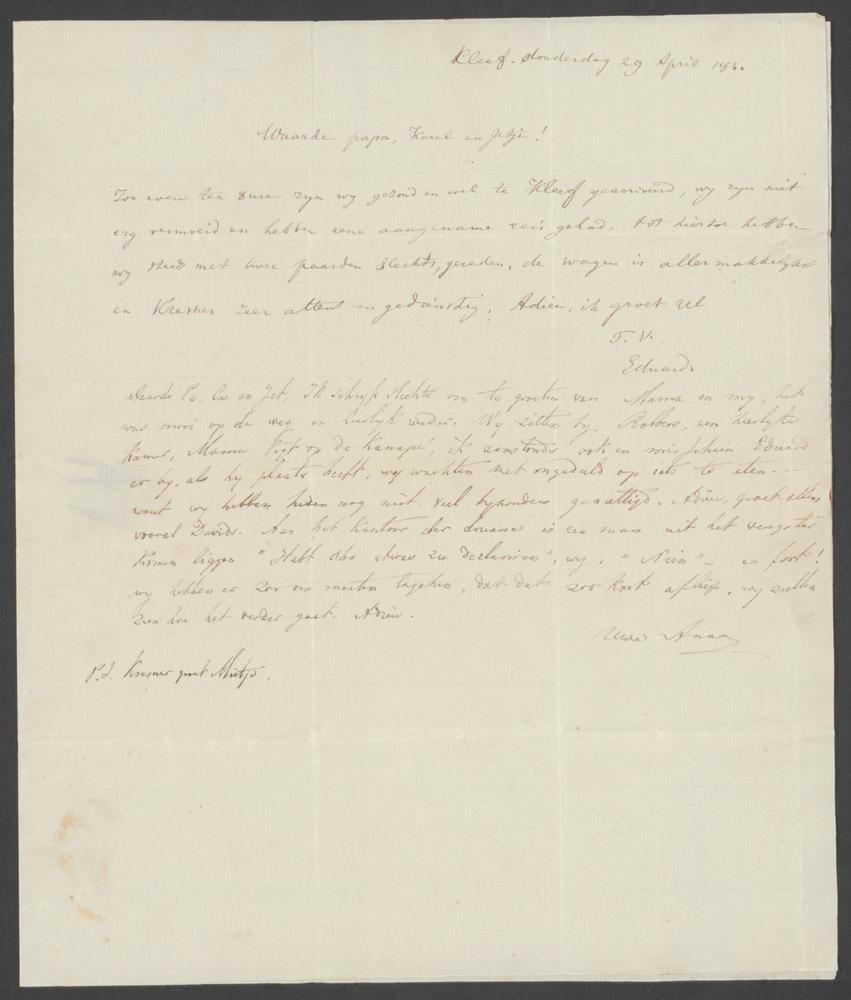 Kleef. donderdag 29 April 183.
Waarde papa, Karel en Jetje!
Zoo even ten 8 ure zyn wy gezond en wel te Kleef gearriveerd, wy zyn niet
erg vermoeid en hebben eene aangename reis gehad, tot hiertoe hebben
wy steeds met twee paarden slechts gereden, de wagen is allermakkelykst
en Kremer zeer attent en gedienstig. Adieu, ik groet Ul
T. V.
Eduard.
Waarde Pa, Ca en Jet. Ik schryf slechts om te groeten van Mama en my; het
was mooi op de weg en heerlyk weder. Wy zitten by Robbers, een heerlyke
kamer, Mama ligt op de Kanapé, ik aanstonds ook en misschien Eduard
er by, als hy plaats heeft, wy wachten met ongeduld op iets te eten. —
want wy hebben heden nog niet veel byzonders genuttigd. Adieu, groet allen
vooral Davids. Aan het kantoor der douane is een man uit het vengster
komen liggen "Habt Ihr etwas zu declariren", wy, "Nein" — en fort!
wy hebben er zoo om moeten lagchen, dat dat zoo kort afliep, wy zullen
zien hoe het verder gaat. Adieu.
Uwe Anna
P.S. Kremer groet Mietje.